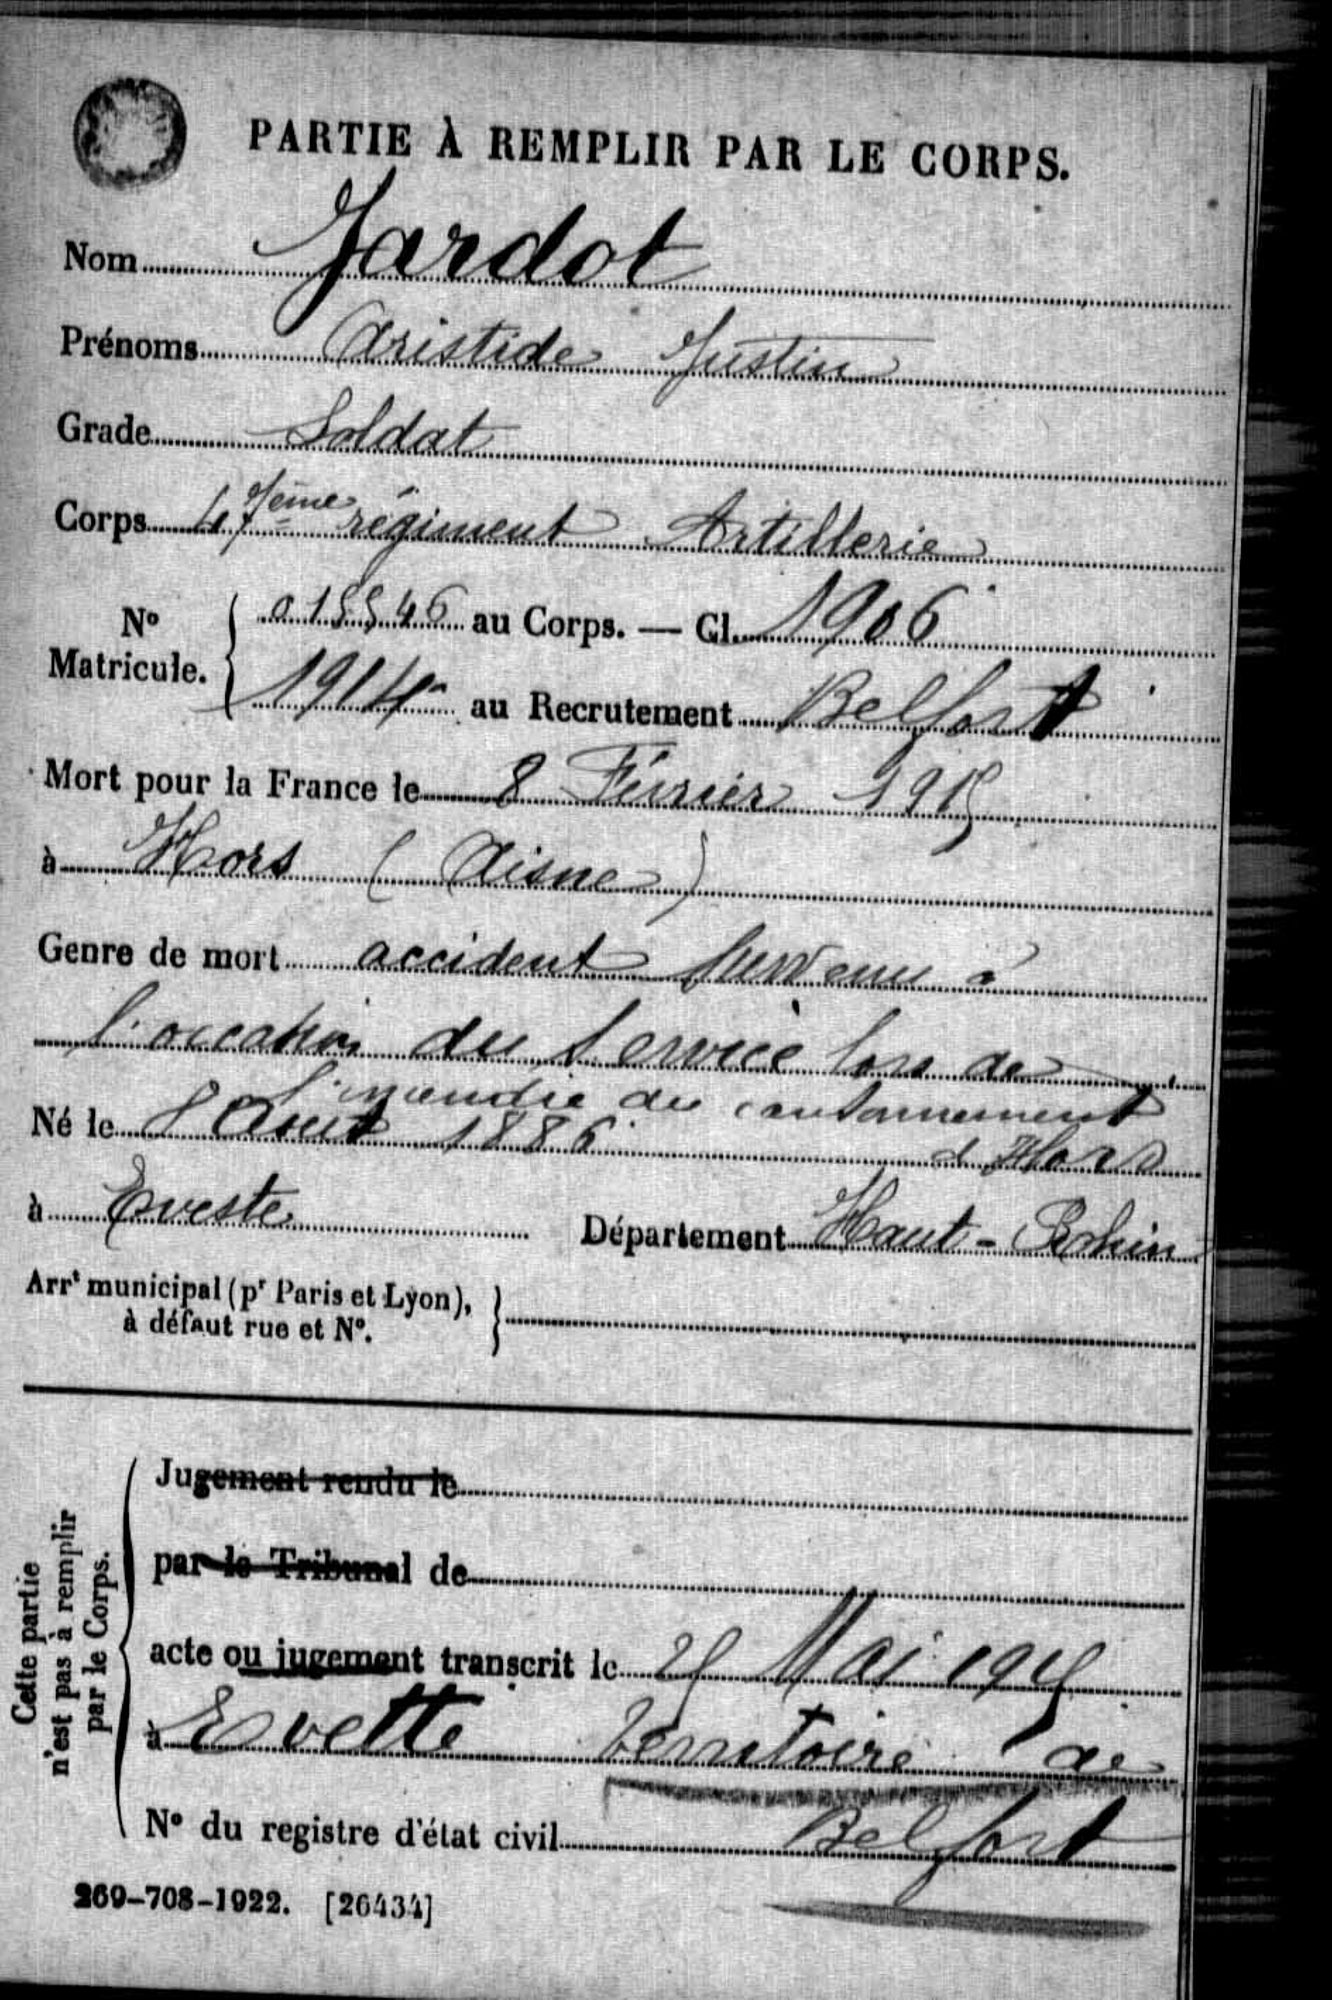 PARTIE À REMPLIR PAR LE CORPS.
Nom Jardot
Prénoms Aristide Justin
Grade Soldat
Corps 47ème régiment Artillerie
No Matricule. { 015546 au Corps. — Cl. 1906
1914 au Recrutement Belfort
Mort pour la France le 8 Février 1915
à Hors (Aisne)
Genre de mort accident survenu à
l'occasion du Service lors de
l'incendie du cantonnement
d'Hors
Né le 8 Aout 1886
à Eveste Département Haut-Rhin
Arrt municipal (pr Paris et Lyon), à défaut rue et No. }
Cette partie n'est pas à remplir par le Corps.
Jugement rendu le
par le Tribunal de
acte ou jugement transcrit le 25 Mai 1915
à Evette Territoire de
Belfort
No du registre d'état civil
269-708-1922. [26434]